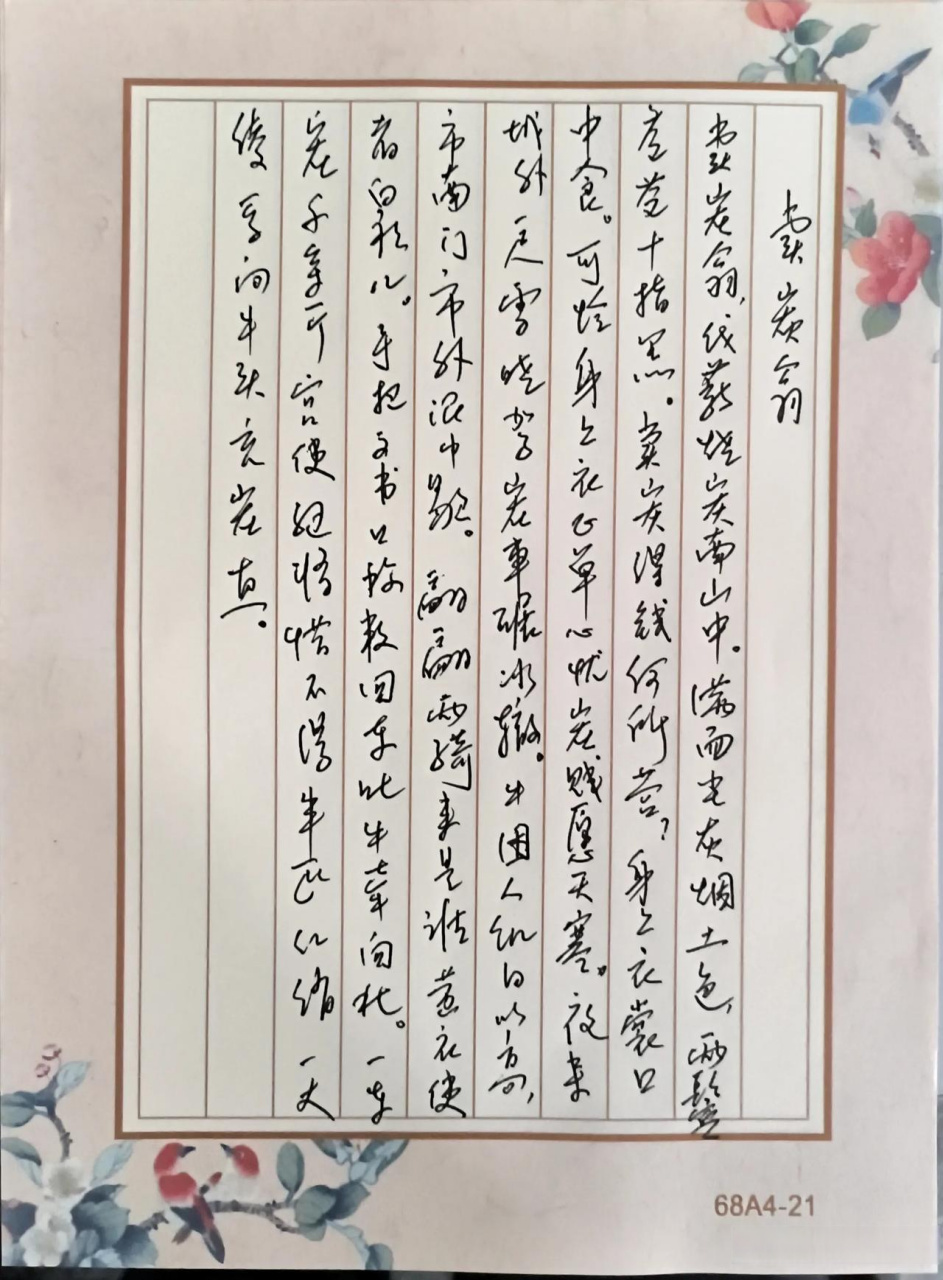 卖炭翁
卖炭翁，伐薪烧炭南山中。满面尘灰烟火色，两鬓
苍苍十指黑。卖炭得钱何所营？身上衣裳口
中食。可怜身上衣正单心忧炭贱愿天寒。夜来
城外一尺雪晓驾炭车碾冰辙。牛困人饥日以高，
市南门市外泥中歇。翩翩两骑来是谁黄衣使
者白衫儿。手把文书口称敕回车叱牛牵向北。一车
炭千余斤宫使驱将惜不得半匹红绡一丈
绫系向牛头充炭直。
68A4-21